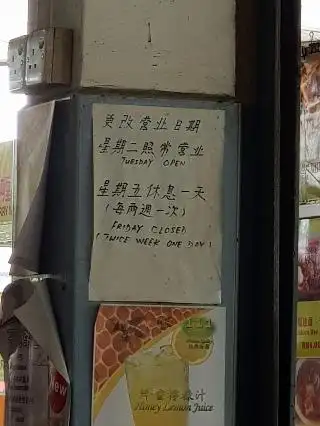 更改营业日期
星期二照常营业
TUESDAY OPEN
星期五休息一天
(每两週一次)
FRIDAY CLOSED
(TWICE WEEK ONE DAY)
Honey Lemon Juice